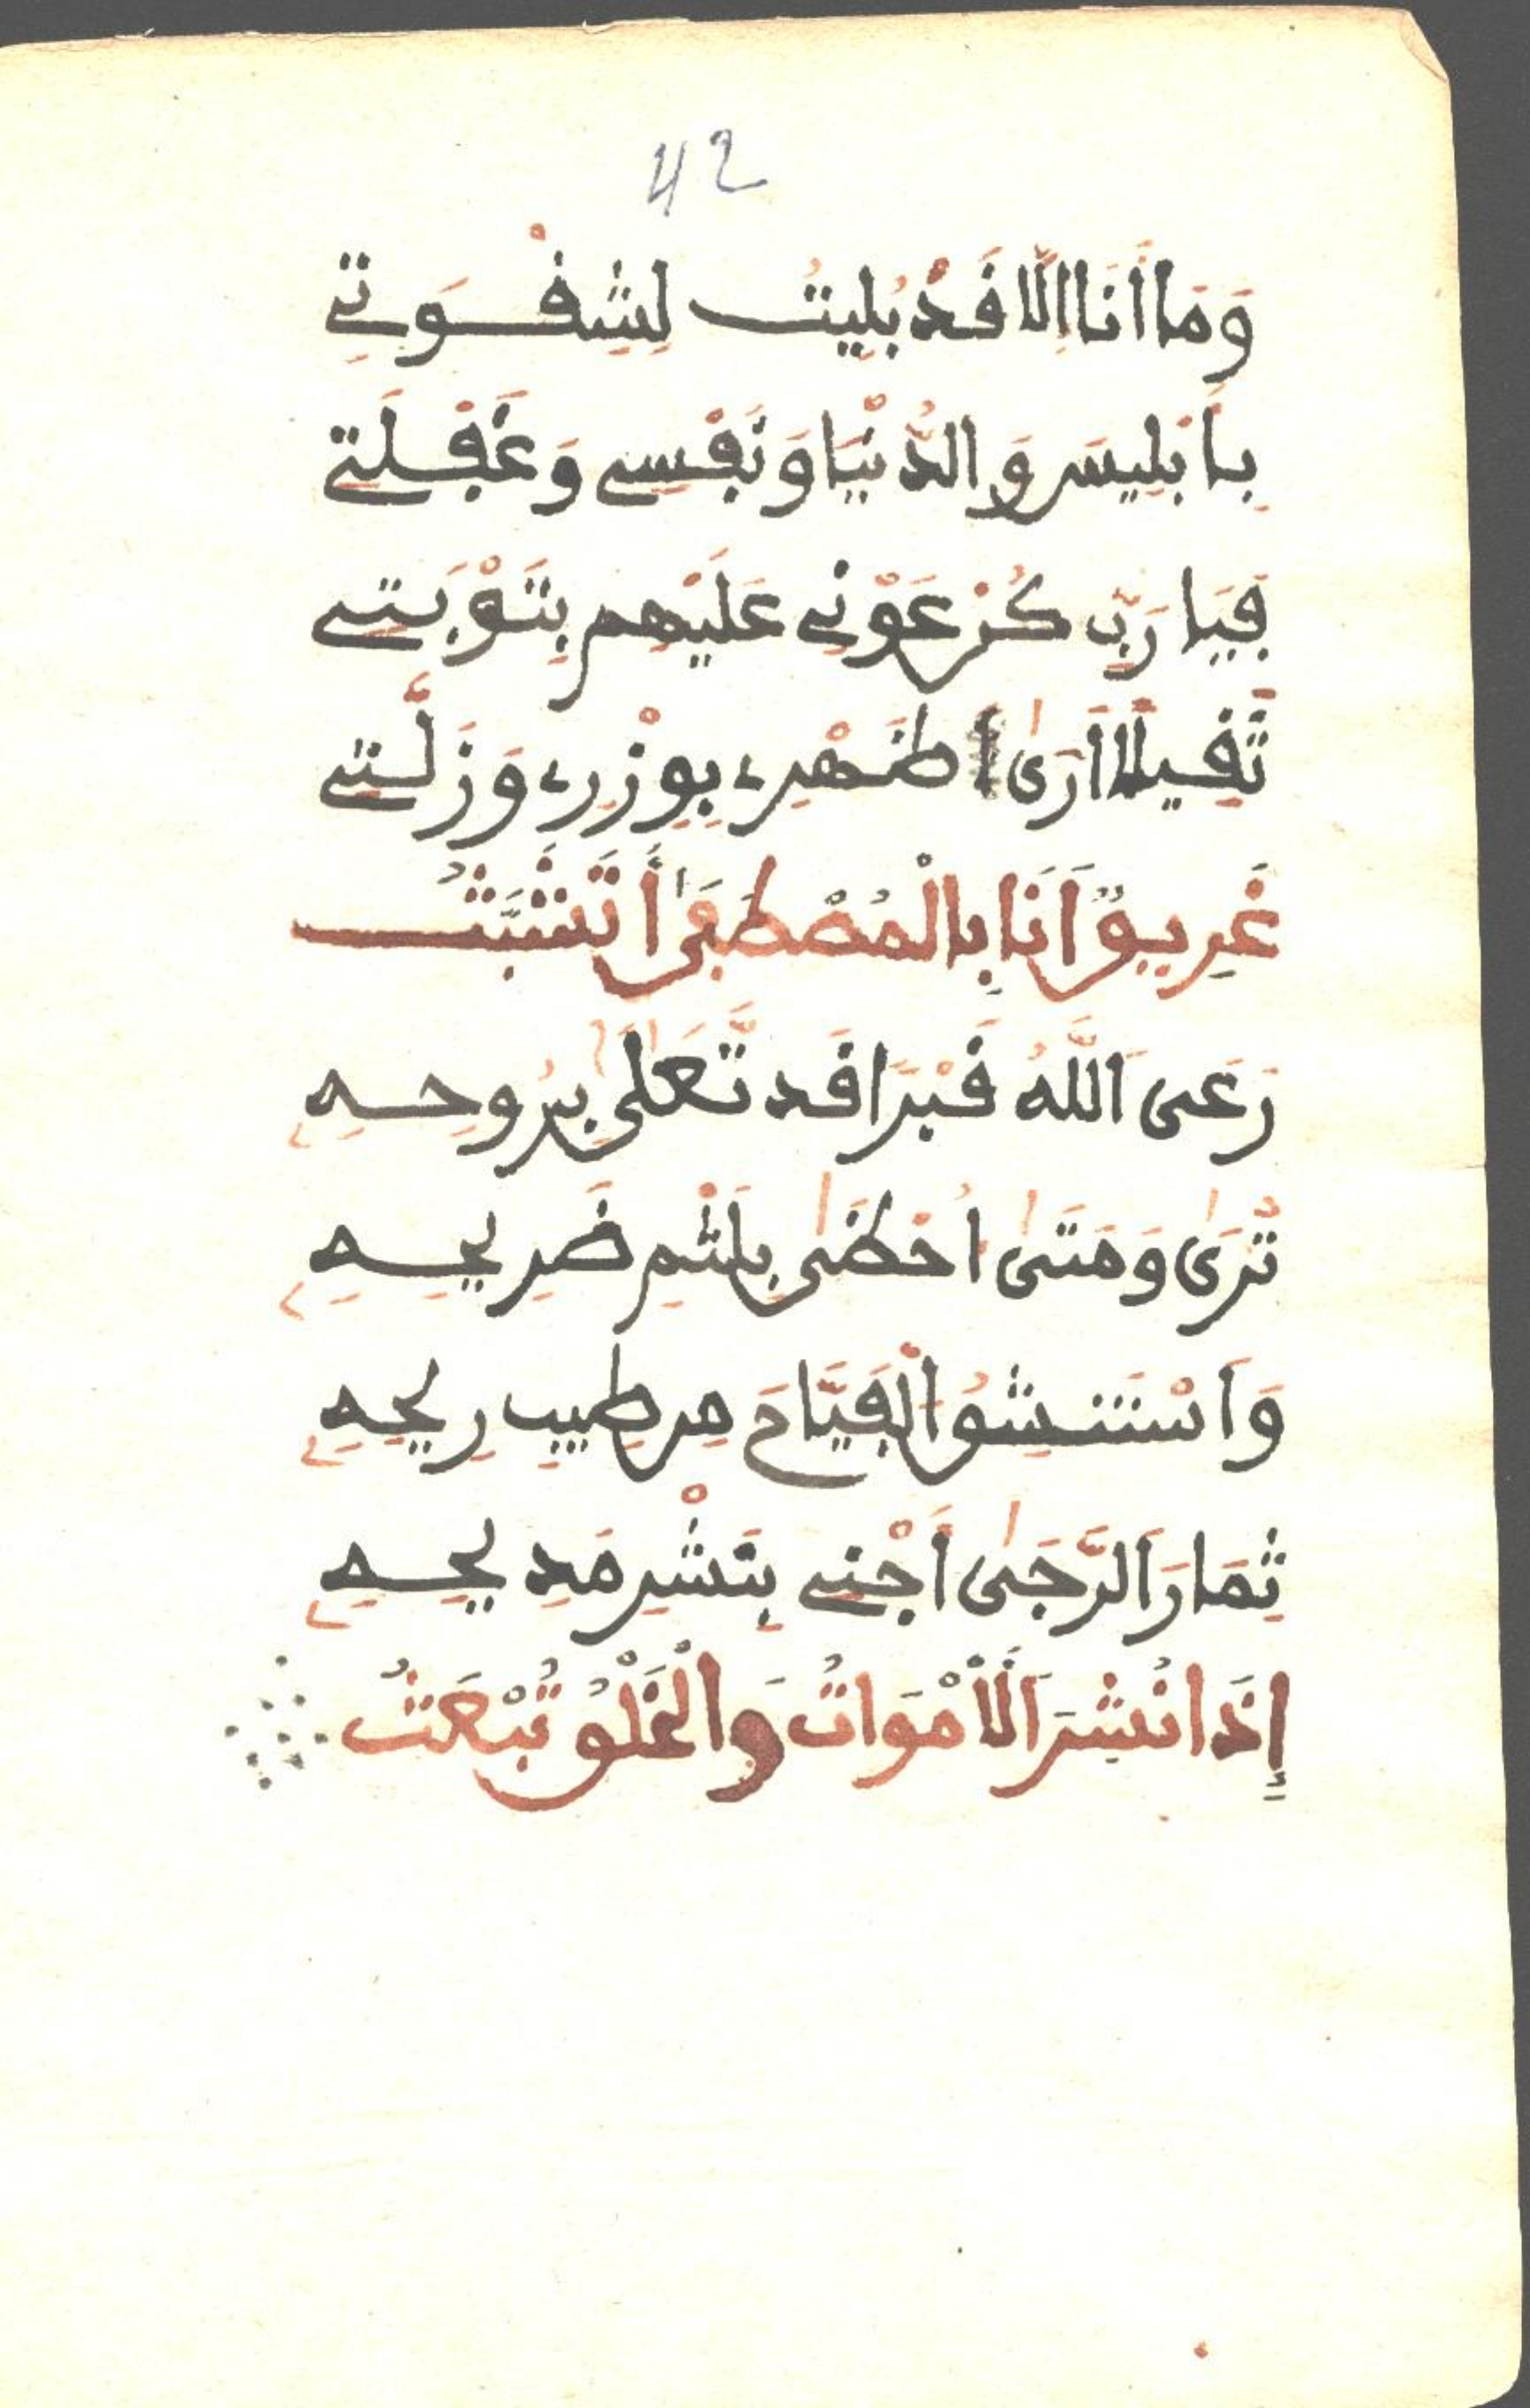 42
وَمَا أَنَا إِلَّا قَدْ بُلِيتُ لِشِقْوَتِي
بِإِبْلِيسَ وَالدُّنْيَا وَنَفْسِي وَغَفْلَتِي
فَيَا رَبِّ كُنْ عَوْنِي عَلَيْهِم بِتَوْبَتِي
ثَقِيلًا أَرَىٰ ظَهْرِي بِوِزْرِي وَزَلَّتِي
غَرِيقٌ أَنَا بِالْمُصْطَفَىٰ أَتَشَبَّثُ
رَعَى اللَّهُ قَبْرًا قَد تَّعَلَىٰ بِرُوحِهِ
تُرَىٰ وَمَتَىٰ أُحْظَىٰ بِلَثْمِ ضَرِيحِهِ
وَأَسْتَنشِقُ الْفَيَّاحَ مِن طِيبِ رِيحِهِ
ثِمَارَ الرَّجَىٰ أَجْنِي بِنَشْرِ مَدِيحِهِ
إِذَا نُشِرَ الْأَمْوَاتُ وَالْخَلْقُ تُبْعَثُ